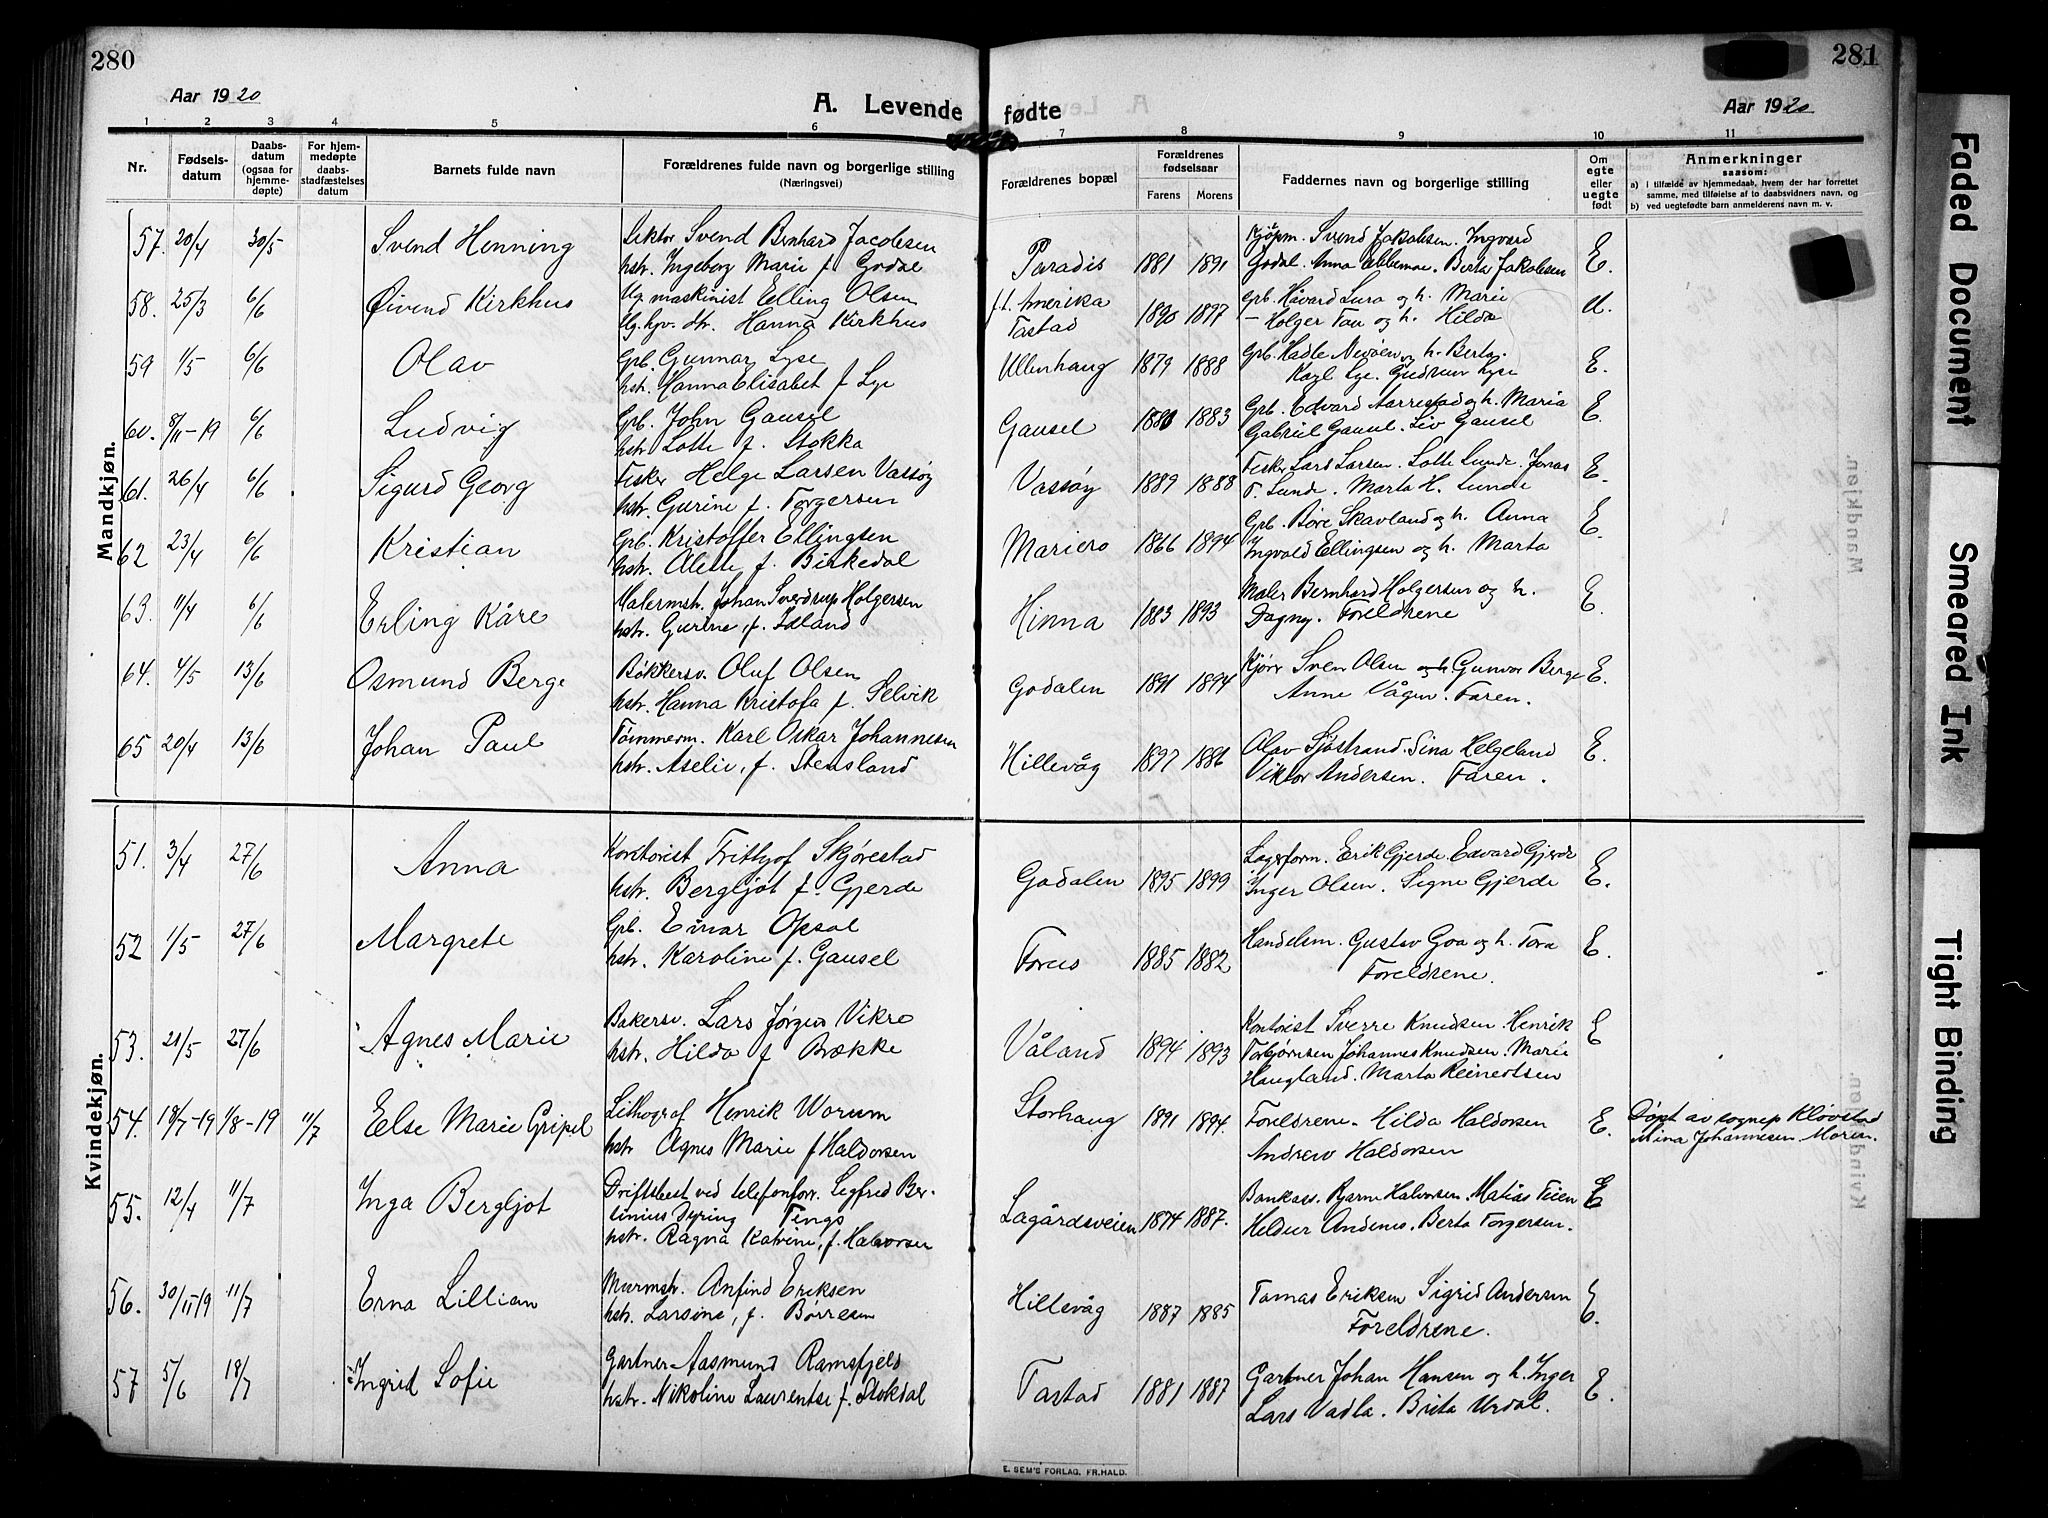 280
281
Aar 1920
A. Levende
fødte
Aar 1920
1 2 3 4 5 6 7 8 9 10 11
Nr.
Fødsels-
datum
Daabs-
datum
(ogsaa for
hjemme-
døpte)
For hjem-
medøpte
daabs-
stadfæstelses
datum
Barnets fulde navn
Forældrenes fulde navn og borgerlige stilling
(Næringsvei)
Forældrenes bopæl
Forældrenes
fødselsaar
Farens Morens
Faddernes navn og borgerlige stilling
Om
egte
eller
uegte
født
Anmerkninger
saasom:
a) i tilfælde av hjemmedaab, hvem der har forrettet
samme, med tilføielse af to daabsvidners navn, og
b) ved uegtefødte barn anmelderens navn m. v.
Mandkjøn.
57. 20/4 30/5 Svend Henning
Lektor Svend Bernhard Jacobsen
hstr. Ingeborg Marie f. Godal
Paradis 1881 1891
Kjøpm. Svend Jakobsen. Ingvard
Godal. Anna Abbemae. Berta Jakobsen
E.
58. 25/3 6/6 Øivend Kirkhus
Ug. maskinist Elling Olsen
Ug. hjv. dtr. Hanna Kirkhus
f.t. Amerika
Tastad
1890 1897
Grb. Håvard Lura og h. Marie
– Holger Tau og h. Hilda
U.
59 1/5 6/6 Olav
Grb. Gunnar Lyse
hstr. Hanna Elisabet f. Lye
Ullenhaug 1879 1888
Grb. Hadle og h. Berta.
Karl Lye. Gudrun Lyse
E.
60. 8/11-19 6/6 Ludvig
Grb. John Gausel
hstr Lotte f. Stokka
Gausel 1883
Grb. Edvard Aarrestad og h. Maria
Gabriel Gausel. Liv Gausel
E.
61. 26/4 6/6 Sigurd Georg
Fisker Helge Larsen Vassøy
hstr. Gurine f. Torgersen
Vassøy 1889 1888
Fisker Lars Larsen. Lotte Lunde. Jonas
T. Lunde. Marta H. Lunde
E.
62 23/4 6/6 Kristian
Grb. Kristoffer Ellingsen
hstr. Alette f. Birkedal
Mariero 1866 1894
Grb. Børe Skavland og h. Anna
Ingvald Ellingsen og h. Marta
E.
63. 11/4 6/6 Erling Kåre
Malermstr. Johan Sverdrup Holgersen
hstr. Gurine, f. Idland
Hinna 1883 1893
Maler Bernhard Holgersen og h.
Dagny. Foreldrene
E.
64. 4/5 13/6 Osmund Berge
Bøkkersv. Oluf Olsen
hstr. Hanna Kristofa f. Selvik
Godalen 1891 1894
Kjørr Sven Olsen og h. Gunvor Berge
Anne Vågen. Faren.
E.
65 20/4 13/6 Johan Paul
Tømmerm. Karl Oskar Johannesen
hstr. Aselie, f. Stensland
Hillevåg 1897 1886
Olav Sjøstrand. Sina Helgeland
Viktor Andersen. Faren.
E.
Kvindekjøn.
51. 3/4 27/6 Anna
Kontorist Frithjof Skjørestad
hstr. Bergljot f. Gjerde
Godalen 1895 1899
Lagerform. Erik Gjerde Edvard Gjerde
Inger Olsen. Signe Gjerde
E.
52 1/5 27/6 Margrete
Grb. Einar Opsal
hstr. Karoline f. Gausel
Forus 1885 1882
Handelsm. Gustav Goa og h. Tora
Foreldrene.
E.
53. 21/5 27/6 Agnes Marie
Bakersv. Lars Jørgen Vikre
hstr. Hilda f. Bække
Våland 1894 1893
Kontorist Sverre Knudsen. Henrik
Torbjørnsen Johannes Knudsen. Marie
Haugland. Marta Reinertsen
E
54. 18/7-19 1/8-19 11/7 Else Marie Gripel
Lithograf Henrik Worum
hstr Agnes Marie f Haldorsen
Storhaug 1891 1894.
Foreldrene. Hilda Haldorsen
Andrew Haldorsen
E.
Døpt av sognep Kløvstad
Mina Johannesen Moren.
55. 12/4 11/7 Inga Bergljot
Driftsbest ved telefonforr. Segfred Ber-
linius Dyring Tengs
hstr. Ragna Katrine, f. Halvorsen
Lagårdsveien 1874 1887.
Bankass. Bjarne Halvorsen. Matias Teien
Heldur Andenes. Berta Torgersen.
E
56. 30/11-19 11/7 Erna Lillian
Murmstr. Anfind Eriksen
hstr. Larsine, f. Børresen
Hillevåg 1887 1885
Tomas Eriksen Sigrid Andersen
Foreldrene.
E.
57 5/6 18/7 Ingrid Sofie
Gartner Aasmund Ramsfjeld
hstr. Nikoline Laurentse f. Stokdal
Tastad 1881 1887
Gartner Johan Hansen og h. Inger
Lars Vadla. Brita Urdal.
E.
E. SEM'S FORLAG, FR.HALD.
Faded Document
Smeared Ink
Tight Binding